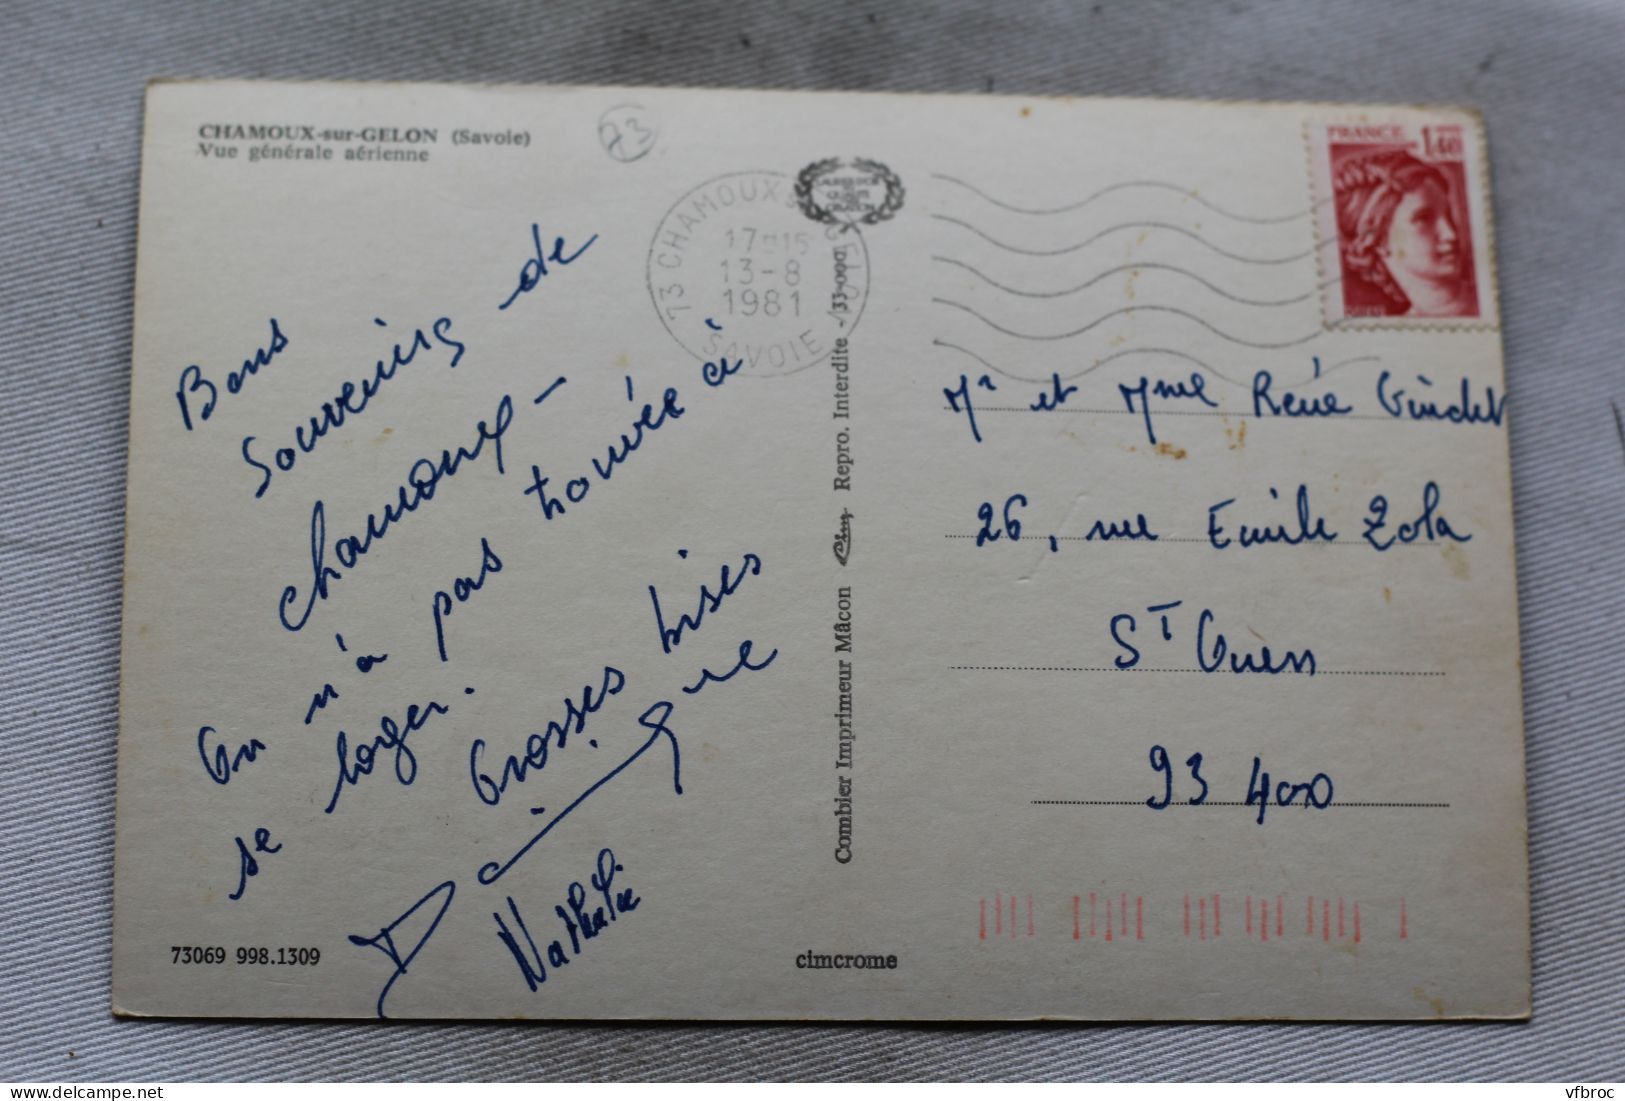 CHAMOUX-sur-GELON (Savoie)
Vue générale aérienne
73
73 CHAMOUX
17 15
13-8
1981
SAVOIE
FRANCE 1,40
Bons
Souvenirs de
Chamoux -
On n'a pas trouvée à
se loger. Grosses bises
Nathalie
Combier Imprimeur Mâcon Repro. Interdite
Mr et Mme René
26, rue Emile Zola
ST Ouen
93 400
73069 998.1309
cimcrome
vfbroc